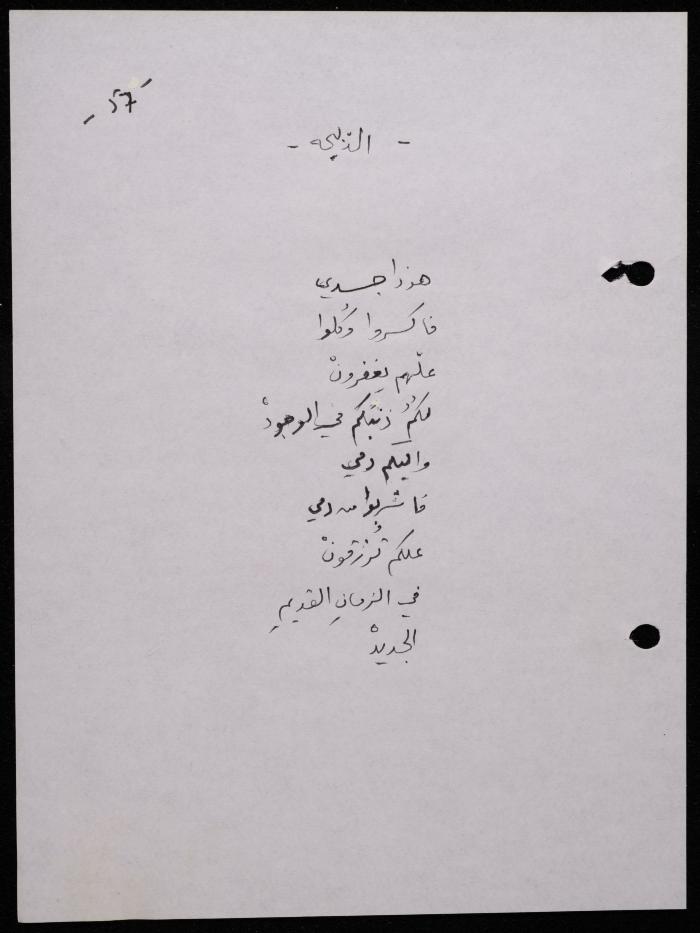 - 57 -
- الذّبيحه -
هوذا جسدي
فاكسروا وكُلوا
علّهم يغفِرونْ
لكُمُ ذنبَكم في الوجودْ
واليكم دمي
فاشربوا من دمي
علكم تُرزقونْ
في الزمانِ القديمِ
الجديدْ